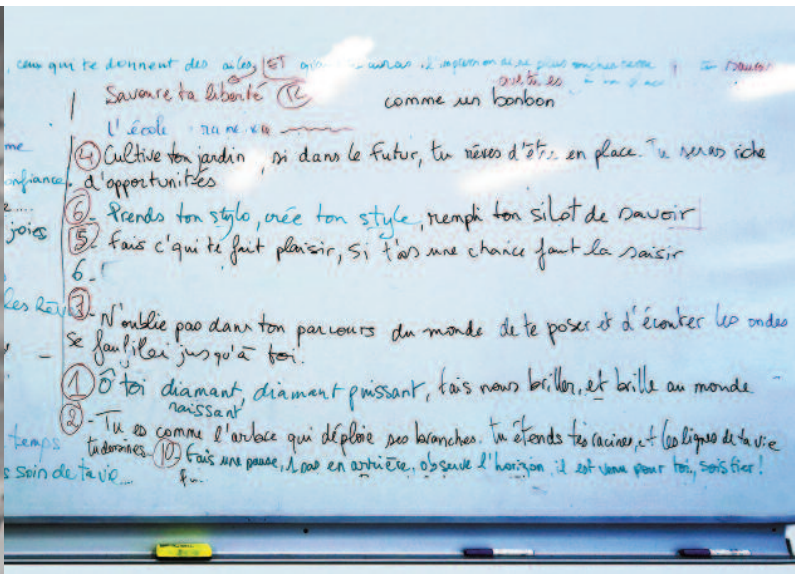 , ceux qui te donnent des ailes, ET
Savoure ta liberté comme un bonbon
L'école
me
④ Cultive ton jardin, si dans le futur, tu rêves d'être en place. Tu seras riche
onfiance
d'opportunités
⑥ - Prends ton stylo, crée ton style, rempli ton silot de savoir
joies
⑤ - Fais c'qui te fait plaisir, si t'as une chance faut la saisir
6 -
③
- N'oublie pas dans ton parcours du monde de te poser et d'écouter les ondes
se faufiler jusqu'à toi.
① Ô toi diamant, diamant puissant, fais nous briller, et brille au monde
naissant
② - Tu es comme l'arbre qui déploie ses branches. Tu étends tes racines, et les lignes de ta vie
temps
tu dessines. ⑩ Fais une pause, 1 pas en arrière, observe l'horizon, il est venu pour toi, sois fier !
s soin de ta vie...